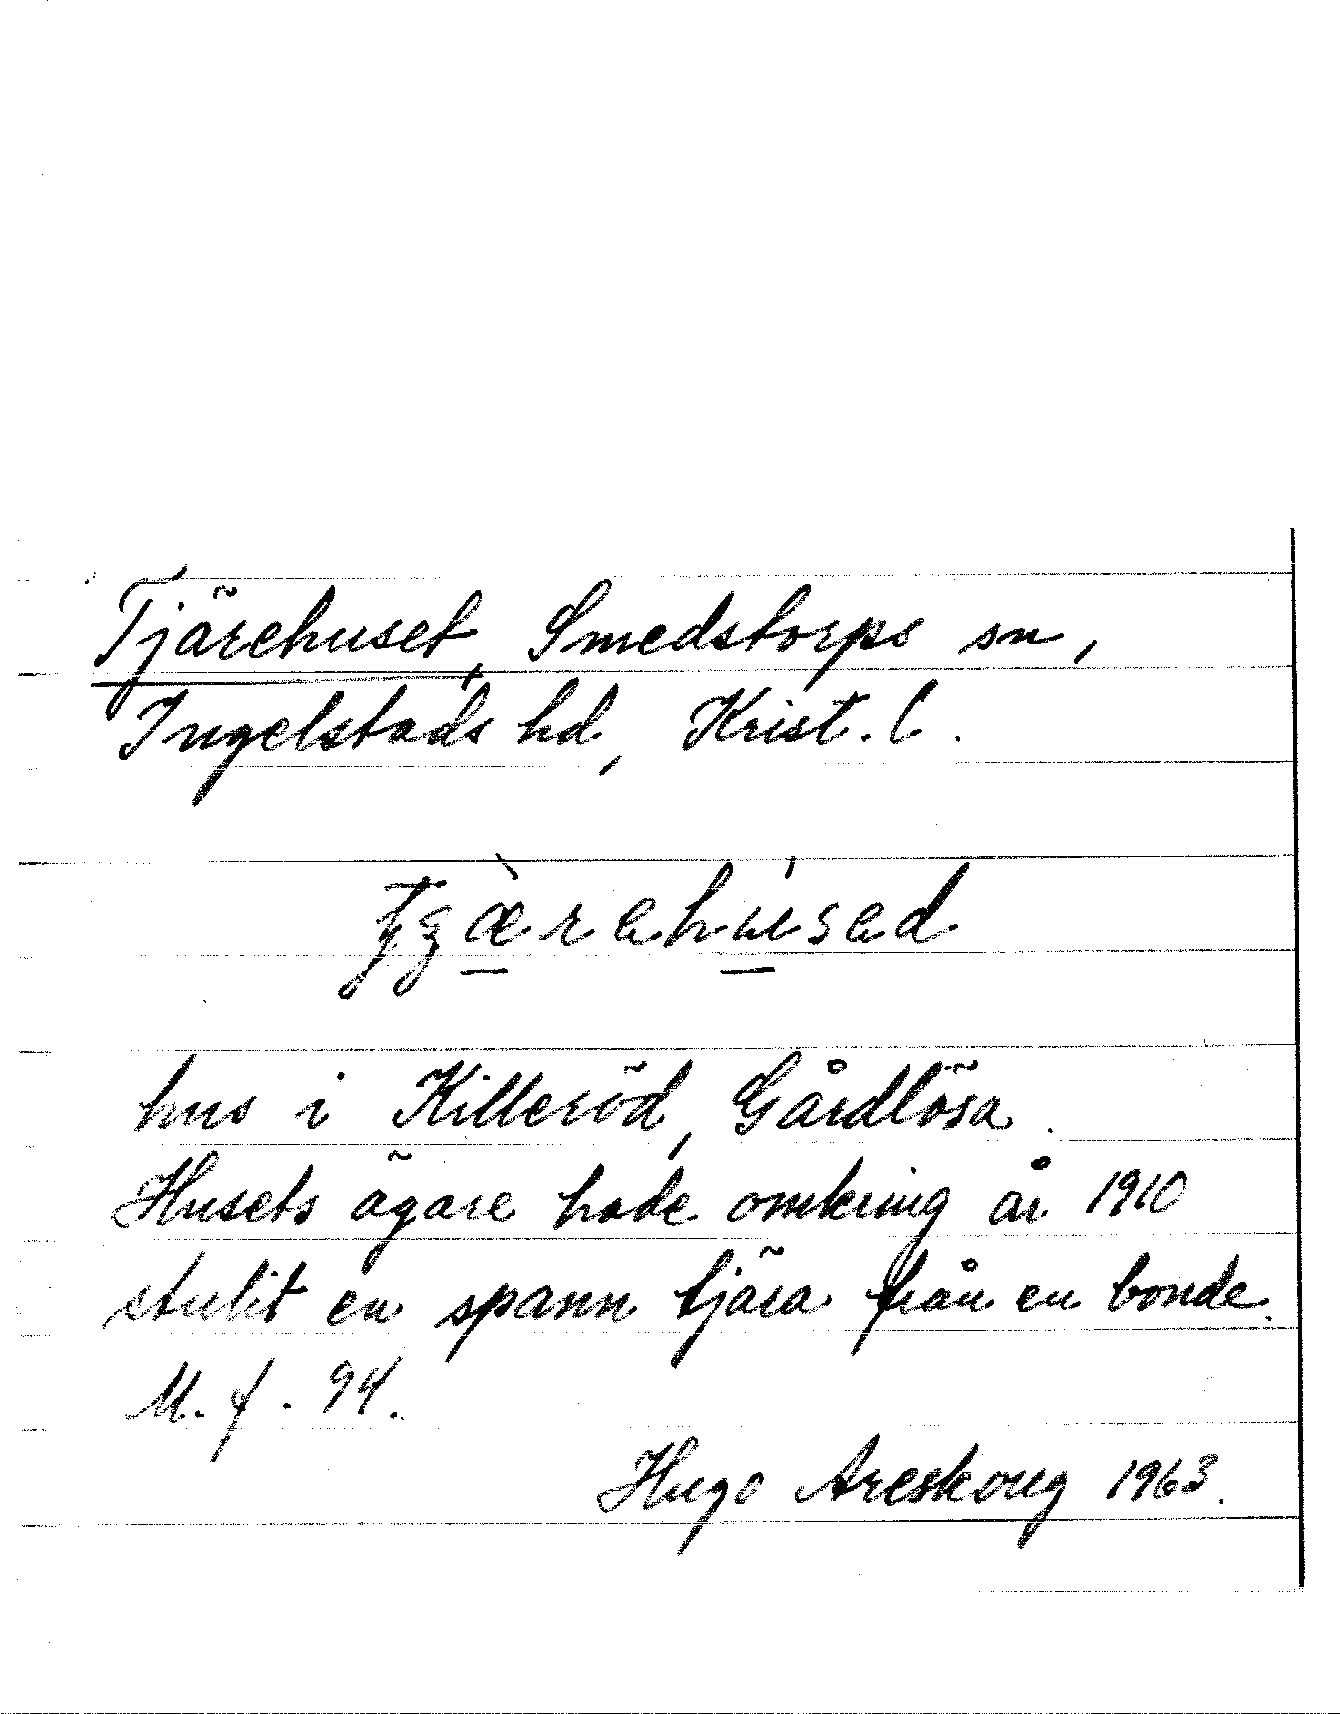 Tjärehuset, Smedstorps sn,
Ingelstads hd, Krist. l.
hus i Killeröd, Gårdlösa.
Husets ägare hade omkring år 1910
stulit en spann tjära från en bonde.
M. f. 94.
Hugo Areskoug 1963.